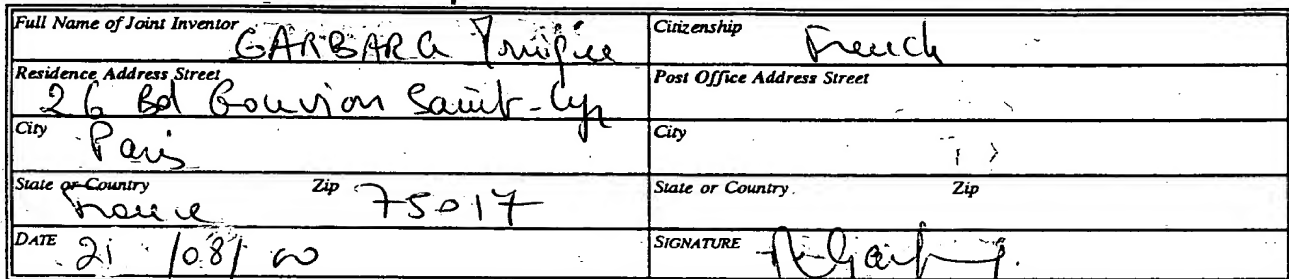 Full Name of Joint Inventor GARBARG Citizenship French
Residence Address Street 26 Bd Gouvion Saint-Cyr Post Office Address Street
City Paris City
State or Country France Zip 75017 State or Country. Zip
DATE 21 /08/ 00 SIGNATURE